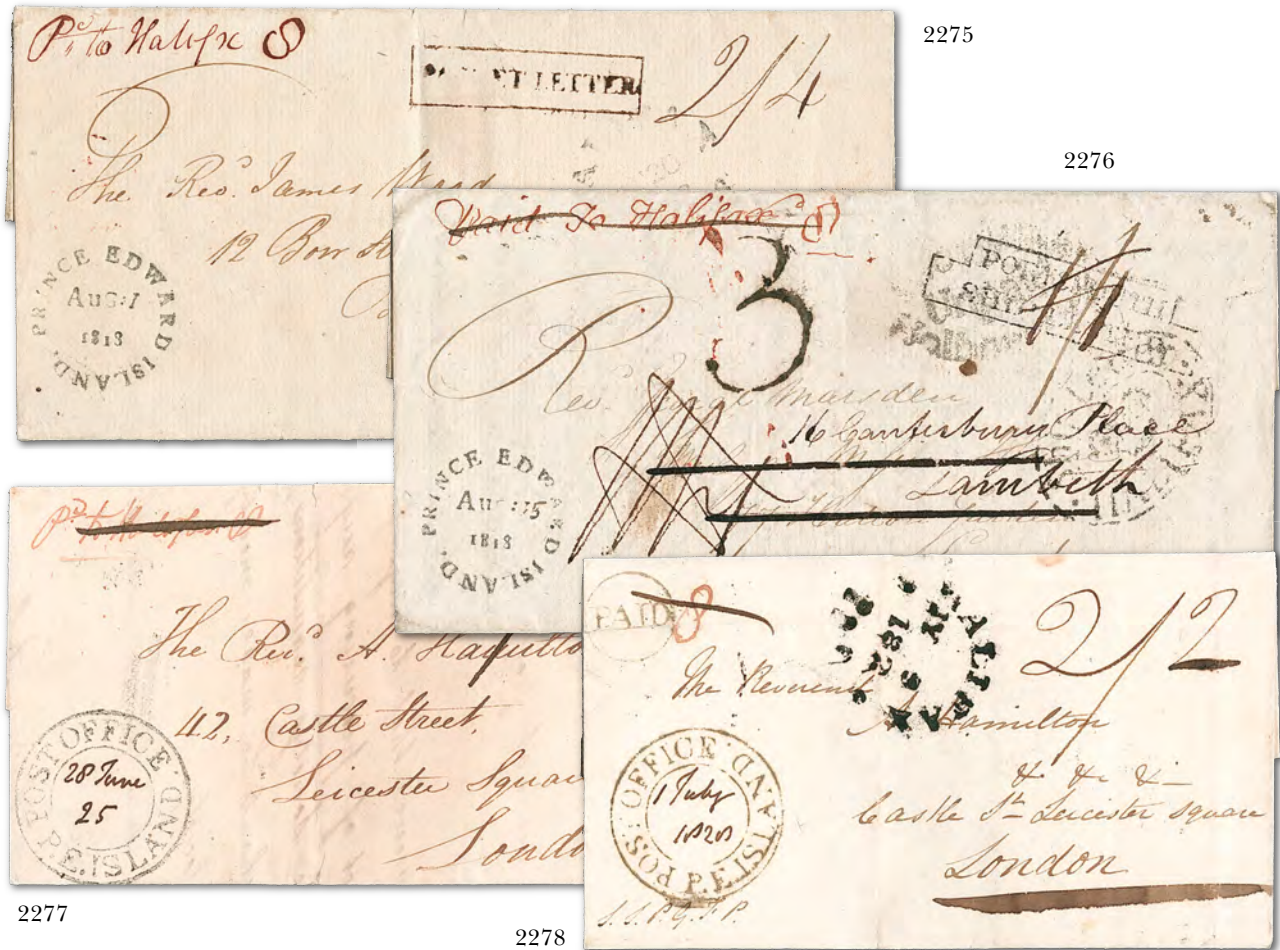 2275
Pd to Halifx 8
LETTER
2/4
The Revd. James Wood
12 Bow St
PRINCE EDWARD ISLAND.
1818
2276
Paid to Halifax 8
3
Portsmouth
Ship Letter
1/1
Rev. Marsden
16 Canterbury Place
Lambeth
PRINCE EDWARD ISLAND.
1818
Pd to Halifax 8
The Revd. A. Hamilto
42, Castle Street,
Leicester Squar
Londo
POST OFFICE
P.E. ISLAND
28 June
25
2277
PAID
8
HALIFAX
2/2
The Reverend
A. Hamilton
& & &
Castle St. Leicester square
London
POST OFFICE
P.E. ISLAND
1 July
1828
S.S.P.G.F.P.
2278